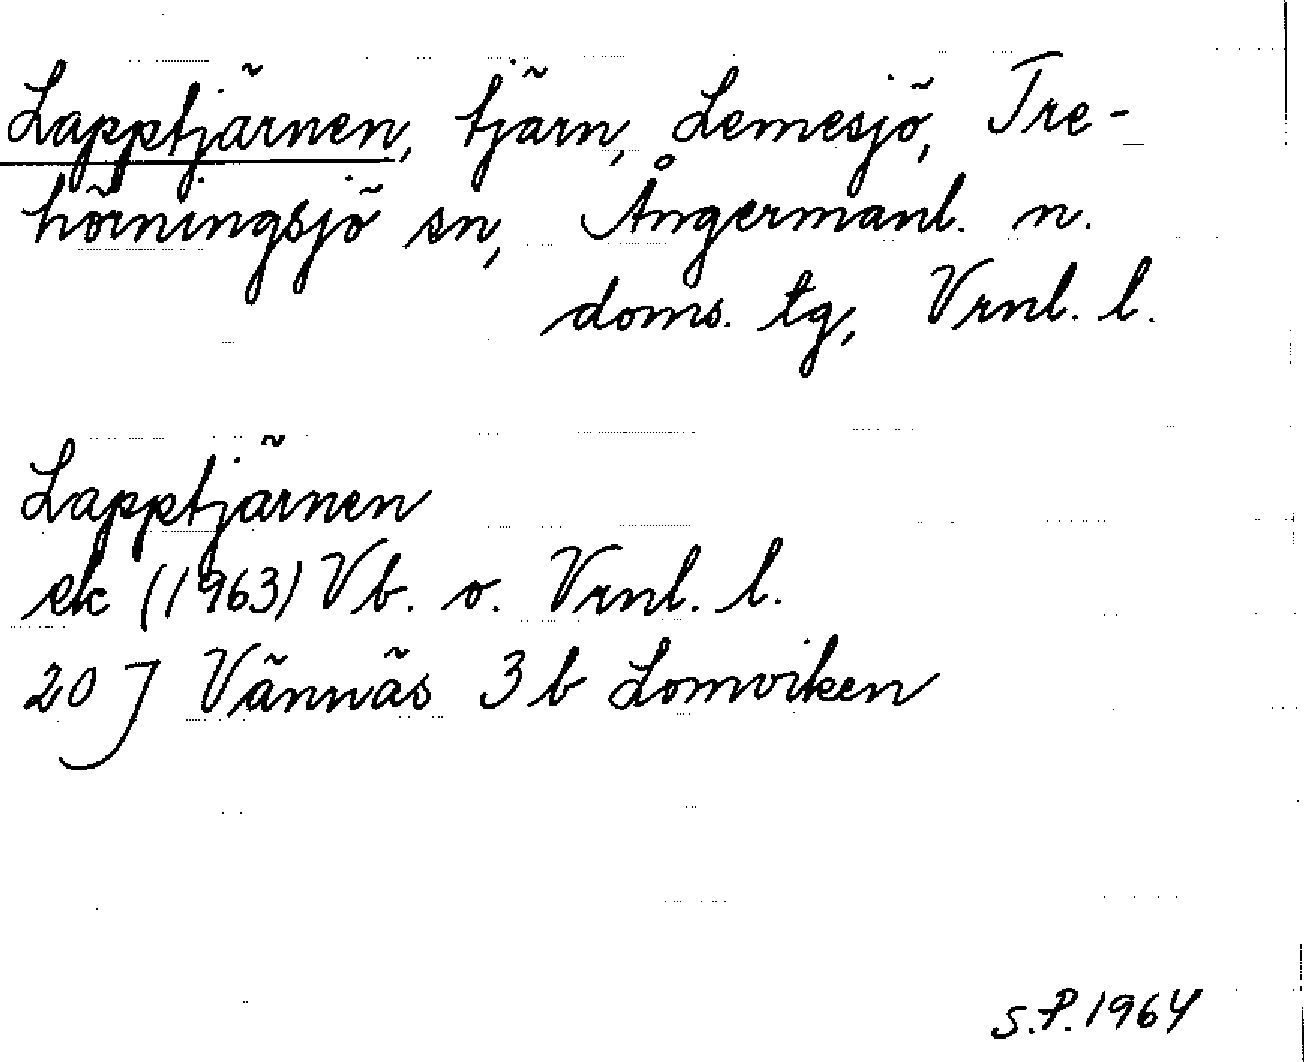 Lapptjärnen, tjärn, Lemesjö, Tre-
hörningsjö sn, Ångermanl. n.
doms. tg, Vrnl. l.
Lapptjärnen
ek (1963) Vb. o. Vrnl. l.
20 J Vännäs 3 b Lomviken
S.P. 1964